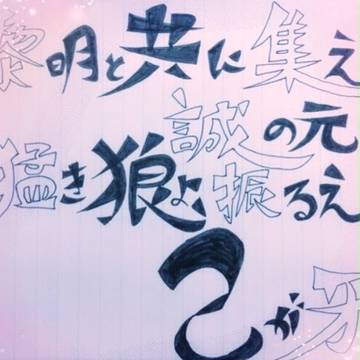 黎明と共に集え
誠の元
猛き狼よ振るえ
己が